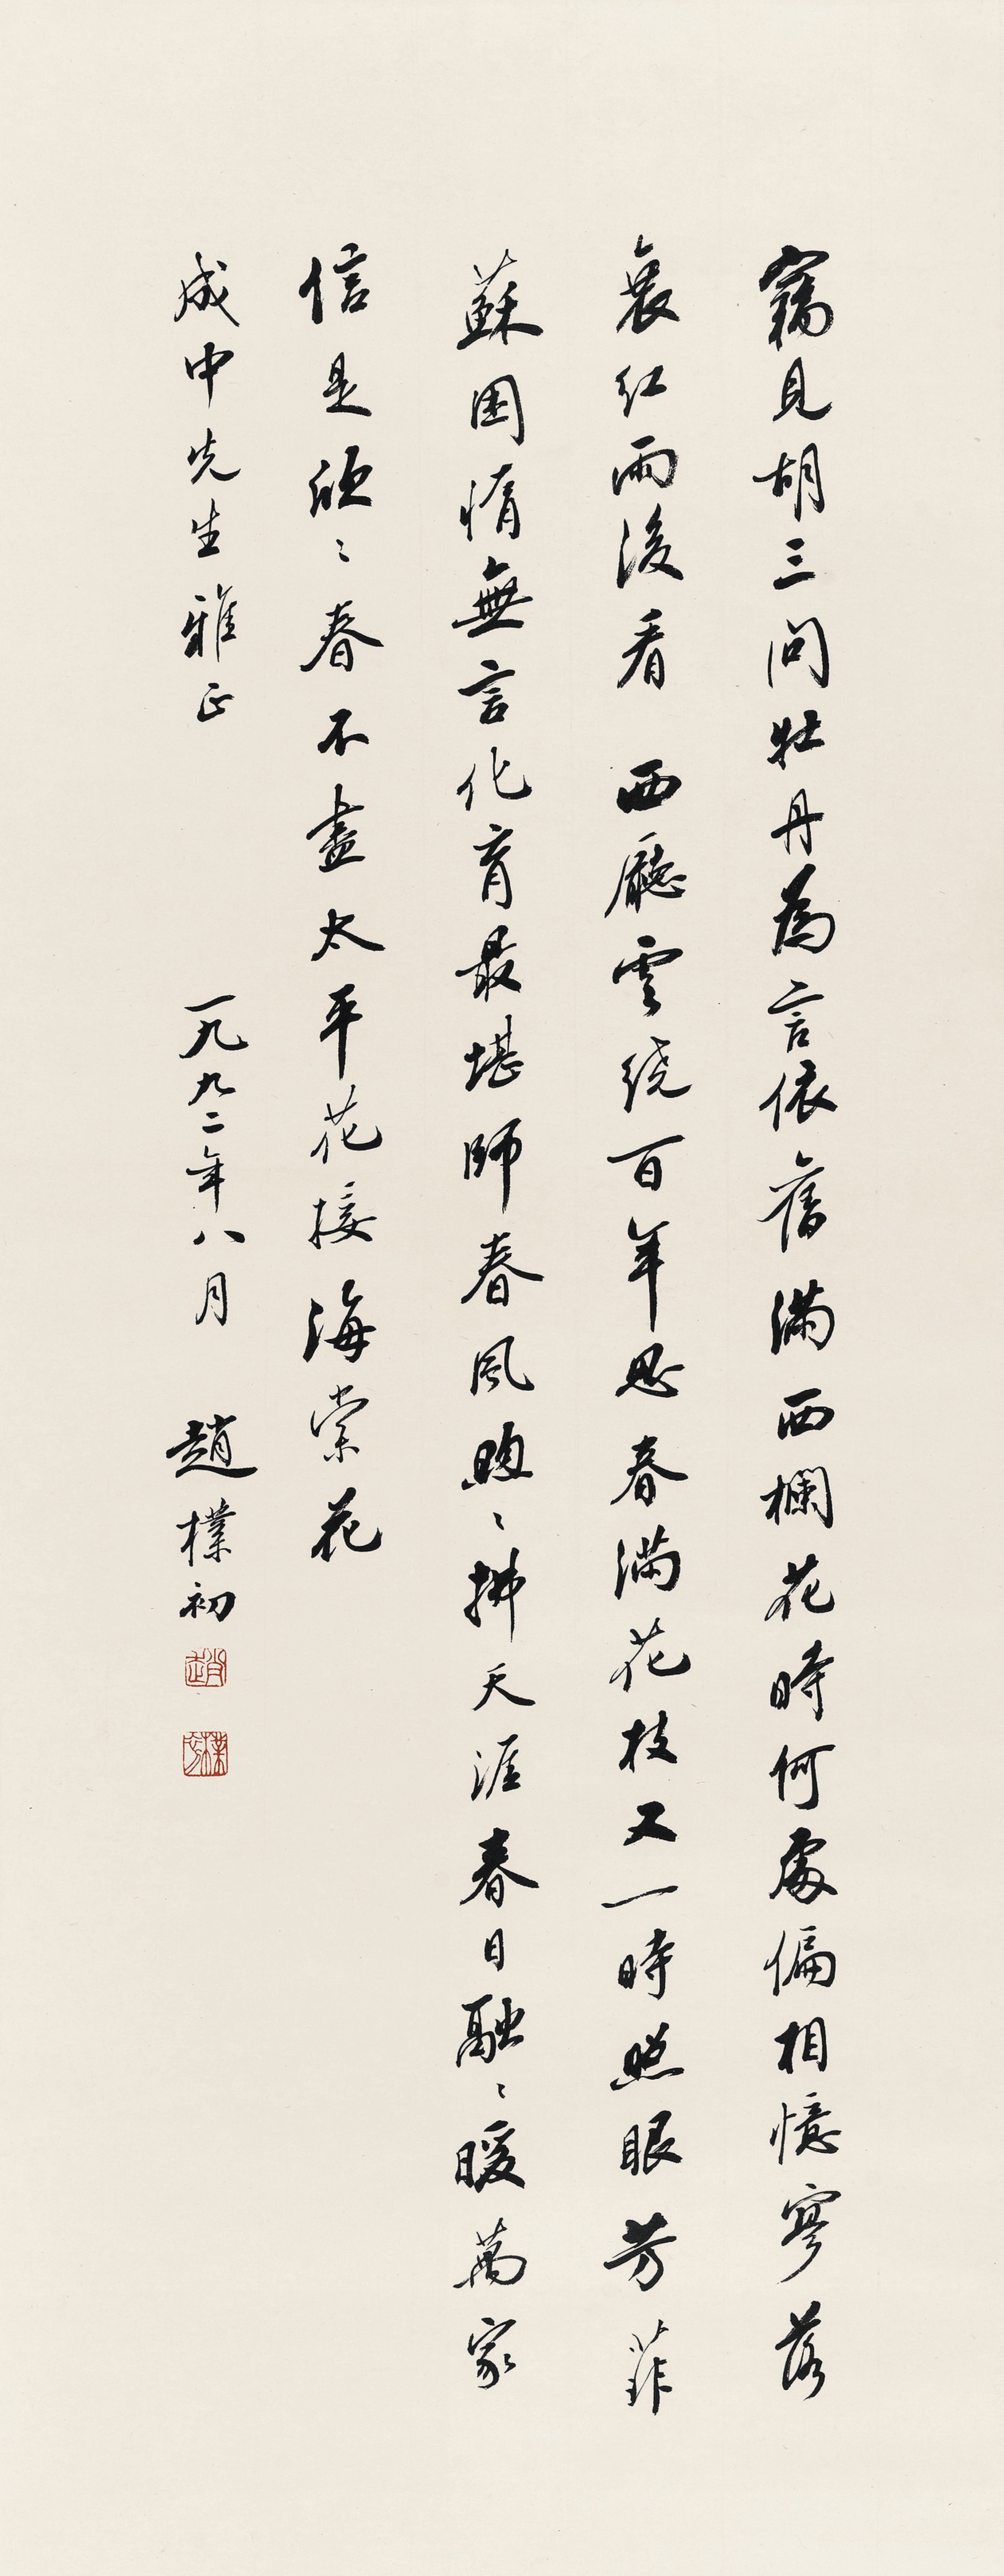 竊見胡三問牡丹為言依舊滿西欄花時何處偏相憶寥落
衰紅雨後看 西廳雲繞百年思春滿花枝又一時照眼芳菲
蘇困惰無言化育最堪師春風煦〻拂天涯春日融〻暖萬家
信是欣〻春不盡太平花接海棠花
成中先生雅正 一九九二年八月 趙樸初